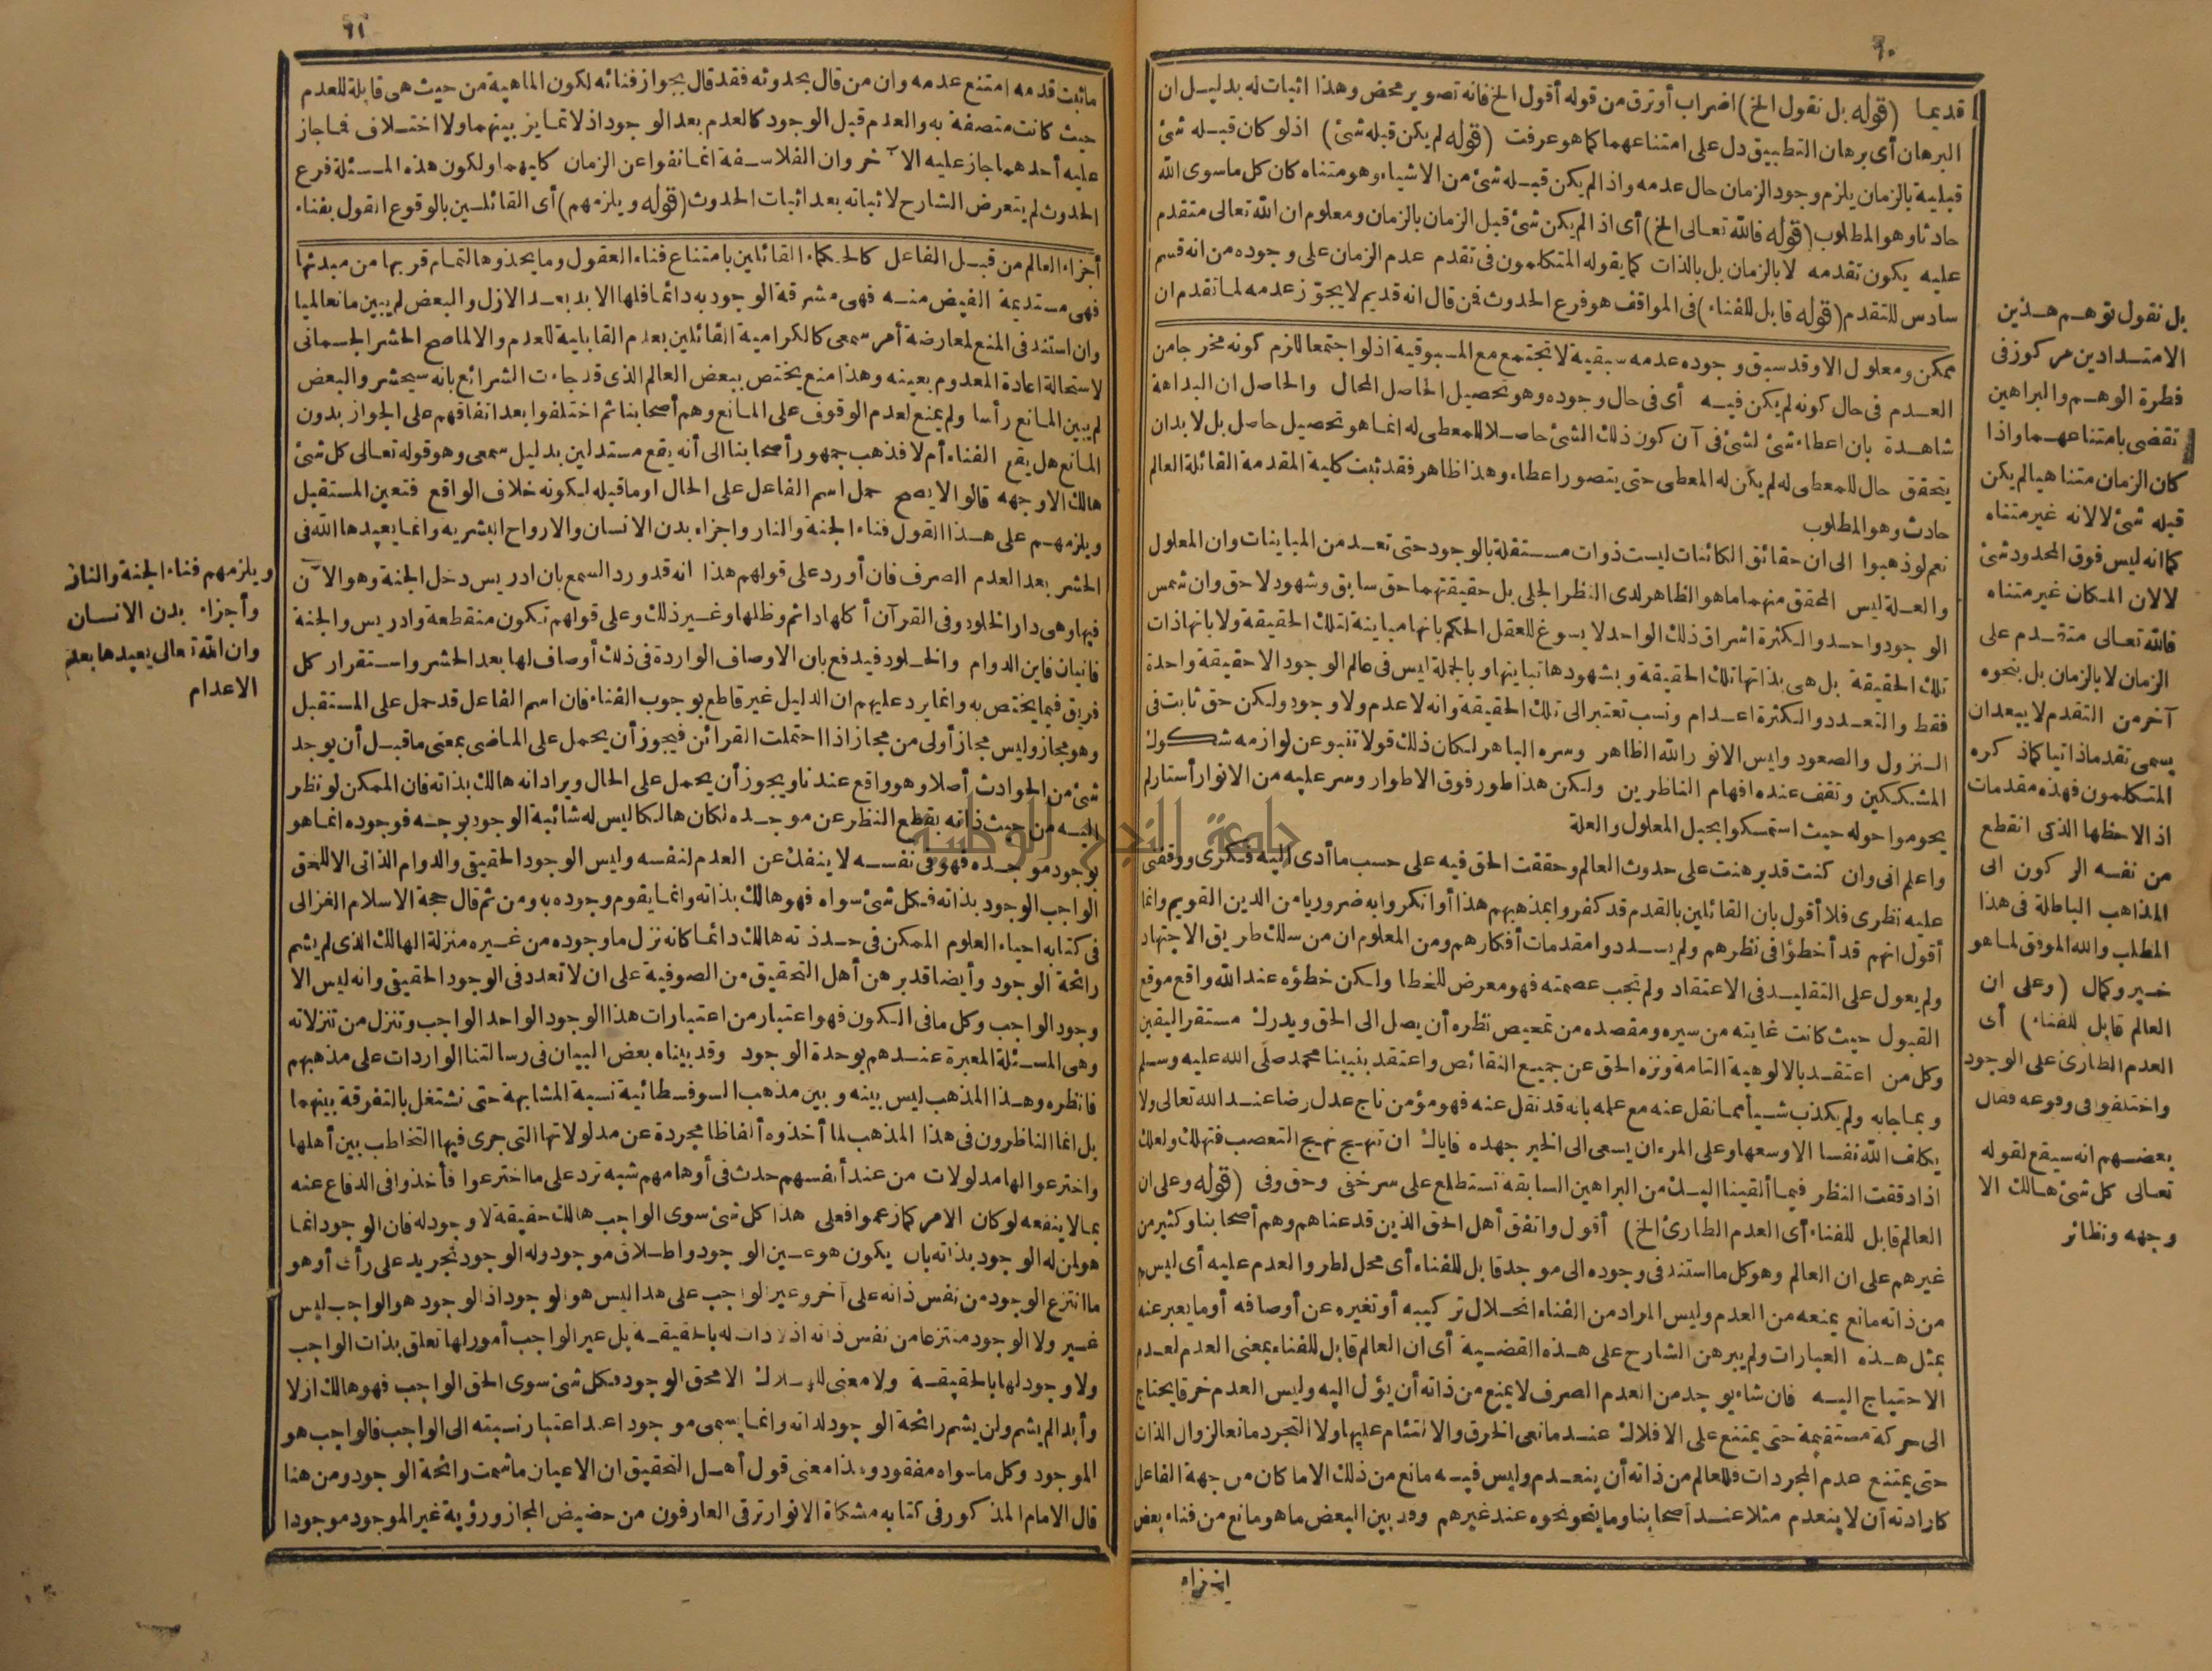 ٦٠
قديما (قوله بل نقول الخ) اضراب أو ترق من قوله أقول الخ فانه تصوير محض وهذا اثبات له بدليل ان
البرهان أى برهان التطبيق دل على امتناعهما كما هو عرفت (قوله لم يكن قبله شئ) اذ لو كان قبله شئ
قبلية بالزمان يلزم وجود الزمان حال عدمه واذا لم يكن قبله شئ من الاشياء وهو متناه كان كل ماسوى الله
حادثا وهو المطلوب (قوله فالله تعالى الخ) أى اذا لم يكن شئ قبل الزمان بالزمان ومعلوم ان الله تعالى متقدم
عليه يكون تقدمه لا بالزمان بل بالذات كما يقوله المتكلمون فى تقدم عدم الزمان على وجوده من انه قسم
سادس للتقدم (قوله قابل للفناء) فى المواقف هو فرع الحدوث فمن قال انه قديم لا يجوز عدمه لما تقدم ان
ممكن ومعلول الا وقد سبق وجوده عدمه سبقية لا تجتمع مع المسبوقية اذ لو اجتمعا للزم كونه مخرجا من
العدم فى حال كونه لم يكن فيه أى فى حال وجوده وهو تحصيل الحاصل المحال والحاصل ان البداهة
شاهدة بان اعطاء شئ لشئ فى آن كون ذلك الشئ حاصلا للمعطى له انما هو تحصيل حاصل بل لا بد ان
يتحقق حال للمعطى له لم يكن له المعطى حتى يتصور اعطاء وهذا ظاهر فقد ثبت كلية المقدمة القائلة العالم
حادث وهو المطلوب
نعم لو ذهبوا الى ان حقائق الكائنات ليست ذوات مستقلة بالوجود حتى تعد من المباينات وان المعلول
والعلة ليس المحقق منهما ما هو الظاهر لدى النظر الجلى بل حقيقتهما حق سابق وشهود لاحق وان شمس
الوجود واحد والكثرة اشراق ذلك الواحد لا يسوغ للعقل الحكم بانها مباينة لتلك الحقيقة ولا بانها ذات
تلك الحقيقة بل هى بذاتها تلك الحقيقة وبشهودها تباينها وبالجملة ليس فى عالم الوجود الا حقيقة واحدة
فقط والتعدد والكثرة اعدام ونسب تعتبر الى تلك الحقيقة وانه لا عدم ولا وجود ولكن حق ثابت فى
النزول والصعود وليس الا نور الله الظاهر وسره الباهر لكان ذلك قولا تنبو عن لوازمه شكوك
المشككين وتقف عنده افهام الناظرين ولكن هذا طور فوق الاطوار وسر عليه من الانوار أستار لم
يحوموا حوله حيث استمسكوا بحبل المعلول والعلة
واعلم انى وان كنت قد برهنت على حدوث العالم وحققت الحق فيه على حسب ما أدى اليه فكرى ووقفنى
عليه نظرى فلا أقول بان القائلين بالقدم قد كفروا بمذهبهم هذا أو انكروا به ضروريا من الدين القويم وانما
أقول انهم قد أخطؤا فى نظرهم ولم يسددوا مقدمات أفكارهم ومن المعلوم ان من سلك طريق الاجتهاد
ولم يعول على التقليد فى الاعتقاد ولم تجب عصمته فهو معرض للخطا ولكن خطؤه عند الله واقع موقع
القبول حيث كانت غايته من سيره ومقصده من تمحيص نظره أن يصل الى الحق ويدرك مستقر اليقين
وكل من اعتقد بالالوهية التامة ونزه الحق عن جميع النقائص واعتقد بنبينا محمد صلى الله عليه وسلم
وبما جاء به ولم يكذب شيأ مما نقل عنه مع علمه بانه قد نقل عنه فهو مؤمن ناج عدل رضا عند الله تعالى ولا
يكلف الله نفسا الا وسعها وعلى المرء ان يسعى الى الخير جهده فاياك ان تنهج نهج التعصب فتهلك ولعلك
اذا دققت النظر فيما ألقينا اليك من البراهين السابقة تستطلع على سر خفى وحق وفى (قوله وعلى ان
العالم قابل للفناء أى العدم الطارئ الخ) أقول واتفق أهل الحق الذين قد عناهم وهم أصحابنا وكثير من
غيرهم على ان العالم وهو كل ما استند فى وجوده الى موجد قابل للفناء أى محل لطرو العدم عليه أى ليس
من ذاته مانع يمنعه من العدم وليس المراد من الفناء انحلال تركيبه أو تغيره عن أوصافه أو ما يعبر عنه
بمثل هذه العبارات ولم يبرهن الشارح على هذه القضية أى ان العالم قابل للفناء بمعنى العدم لعدم
الاحتياج اليه فان شاء يوجد من العدم الصرف لا يمنع من ذاته أن يؤل اليه وليس العدم خرقا يحتاج
الى حركة مستقيمة حتى يمتنع على الافلاك عند مانعى الخرق والالتئام عليها ولا التجرد مانعا لزوال الذات
حتى يمتنع عدم المجردات فللعالم من ذاته أن ينعدم وليس فيه مانع من ذلك الا ما كان من جهة الفاعل
كارادته أن لا ينعدم مثلا عند أصحابنا وما ينحو نحوه عند غيرهم وقد بين البعض ما هو مانع من فناء بعض
بل نقول توهم هذين
الامتدادين مركوز فى
فطرة الوهم والبراهين
تقضى بامتناعهما واذا
كان الزمان متناهيا لم يكن
قبله شئ لا لانه غير متناه
كما انه ليس فوق المحدود شئ
لا لان المكان غير متناه
فالله تعالى متقدم على
الزمان لا بالزمان بل بنحو
آخر من التقدم لا يبعد ان
يسمى تقدما ذاتيا كما ذكره
المتكلمون فهذه مقدمات
اذا لاحظها الذكى انقطع
من نفسه الركون الى
المذاهب الباطلة فى هذا
المطلب والله الموفق لما هو
خير وكمال (وعلى ان
العالم قابل للفناء) أى
العدم الطارئ على الوجود
واختلفوا فى وقوعه فقال
بعضهم انه سيقع لقوله
تعالى كل شئ هالك الا
وجهه ونظائر
٦١
ما ثبت قدمه امتنع عدمه وان من قال بحدوثه فقد قال بجواز فنائه لكون الماهية من حيث هى قابلة للعدم
حيث كانت متصفة به والعدم قبل الوجود كالعدم بعد الوجود اذ لا تمايز بينهما ولا اختلاف فما جاز
عليه أحدهما جاز عليه الآخر وان الفلاسفة انما نفوا عن الزمان كليهما ولكون هذه المسئلة فرع
الحدوث لم يتعرض الشارح لاثباته بعد اثبات الحدوث (قوله ويلزمهم) أى القائلين بالوقوع القول بفناء
أجزاء العالم من قبل الفاعل كالحكماء القائلين بامتناع فناء العقول وما يحذوها لتمام قربها من مبدئها
فهى مستديمة الفيض منه فهى مشرقة الوجود به دائما فلها الابد بعد الازل والبعض لم يبين مانعا لميا
وان استند فى المنع لمعارضة أمر سمعى كالكرامية القائلين بعدم القابلية للعدم والا لما صح الحشر الجسمانى
لاستحالة اعادة المعدوم بعينه وهذا منع يختص ببعض العالم الذى قد جاءت الشرائع بانه سيحشر والبعض
لم يبين المانع رأسا ولم يمنع لعدم الوقوف على المانع وهم أصحابنا ثم اختلفوا بعد اتفاقهم على الجواز بدون
المانع هل يقع الفناء أم لا فذهب جمهور أصحابنا الى أنه يقع مستدلين بدليل سمعى وهو قوله تعالى كل شئ
هالك الا وجهه قالوا لا يصح حمل اسم الفاعل على الحال او ما قبله لكونه خلاف الواقع فتعين المستقبل
ويلزمهم على هذا القول فناء الجنة والنار واجزاء بدن الانسان والارواح البشريه وانما يعيدها الله فى
الحشر بعد العدم الصرف فان أورد على قولهم هذا انه قد ورد السمع بان ادريس دخل الجنة وهو الآن
فيها وهى دار الخلود وفى القرآن أكلها دائم وظلها وغير ذلك وعلى قولهم تكون منقطعة وادريس والجنة
فانيان فاين الدوام والخلود فيدفع بان الاوصاف الواردة فى ذلك أوصاف لها بعد الحشر واستقرار كل
فريق فيما يختص به وانما يرد عليهم ان الدليل غير قاطع بوجوب الفناء فان اسم الفاعل قد حمل على المستقبل
وهو مجاز وليس مجاز أولى من مجاز اذا احتملت القرائن فيجوز أن يحمل على الماضى بمعنى ما قبل أن يوجد
شئ من الحوادث أصلا وهو واقع عندنا ويجوز أن يحمل على الحال ويراد انه هالك بذاته فان الممكن لو نظر
اليه من حيث ذاته بقطع النظر عن موجده لكان هالكا ليس له شائبة الوجود بوجه فوجوده انما هو
بوجود موجده فهو فى نفسه لا ينفك عن العدم لنفسه وليس الوجود الحقيقى والدوام الذاتى الا للحق
الواجب الوجود بذاته فكل شئ سواه فهو هالك بذاته وانما يقوم وجوده به ومن ثم قال حجة الاسلام الغزالى
فى كتابه احياء العلوم الممكن فى حد ذته هالك دائما كانه نزل ما وجوده من غيره منزلة الهالك الذى لم يشم
رائحة الوجود وأيضا قد برهن أهل التحقيق من الصوفية على ان لا تعدد فى الوجود الحقيقى وانه ليس الا
وجود الواجب وكل ما فى الكون فهو اعتبار من اعتبارات هذا الوجود الواحد الواجب وتنزل من تنزلاته
وهى المسئلة المعبرة عندهم بوحدة الوجود وقد بيناه بعض البيان فى رسالتنا الواردات على مذهبهم
فانظره وهذا المذهب ليس بينه وبين مذهب السوفسطائية نسبة المشابهة حتى نشتغل بالتفرقة بينهما
بل انما الناظرون فى هذا المذهب لما أخذوه ألفاظا مجردة عن مدلولاتها التى جرى فيها التخاطب بين أهلها
واخترعوا لها مدلولات من عند أنفسهم حدث فى أوهامهم شبه ترد على ما اخترعوا فأخذوا فى الدفاع عنه
بما لا ينفعه لو كان الامر كما زعموا فعلى هذا كل شئ سوى الواجب هالك حقيقة لا وجود له فان الوجود انما
هو لمن له الوجود بذاته بان يكون هو عين الوجود واطلاق موجود وله الوجود تجريد على رأى أو هو
ما انتزع الوجود من نفس ذاته على آخر وغير الواجب على هذا ليس هو الوجود اذ الوجود هو الواجب ليس
غير ولا الوجود منتزعا من نفس ذاته اذ لا ذات له بالحقيقة بل غير الواجب أمور لها تعلق بذات الواجب
ولا وجود لها بالحقيقة ولا معنى للهلاك الا محق الوجود فكل شئ سوى الحق الواجب فهو هالك ازلا
وأبدا لم يشم ولن يشم رائحة الوجود لذاته وانما يسمى موجودا عند اعتبار نسبته الى الواجب فالواجب هو
الموجود وكل ما سواه مفقود وهذا معنى قول أهل التحقيق ان الاعيان ما شمت رائحة الوجود ومن هنا
قال الامام المذكور فى كتابه مشكاة الانوار ترقى العارفون من حضيض المجاز ورؤية غير الموجود موجودا
ويلزمهم فناء الجنة والنار
وأجزاء بدن الانسان
وان الله تعالى يعيدها بعد
الاعدام
جامعة النجاح الوطنية